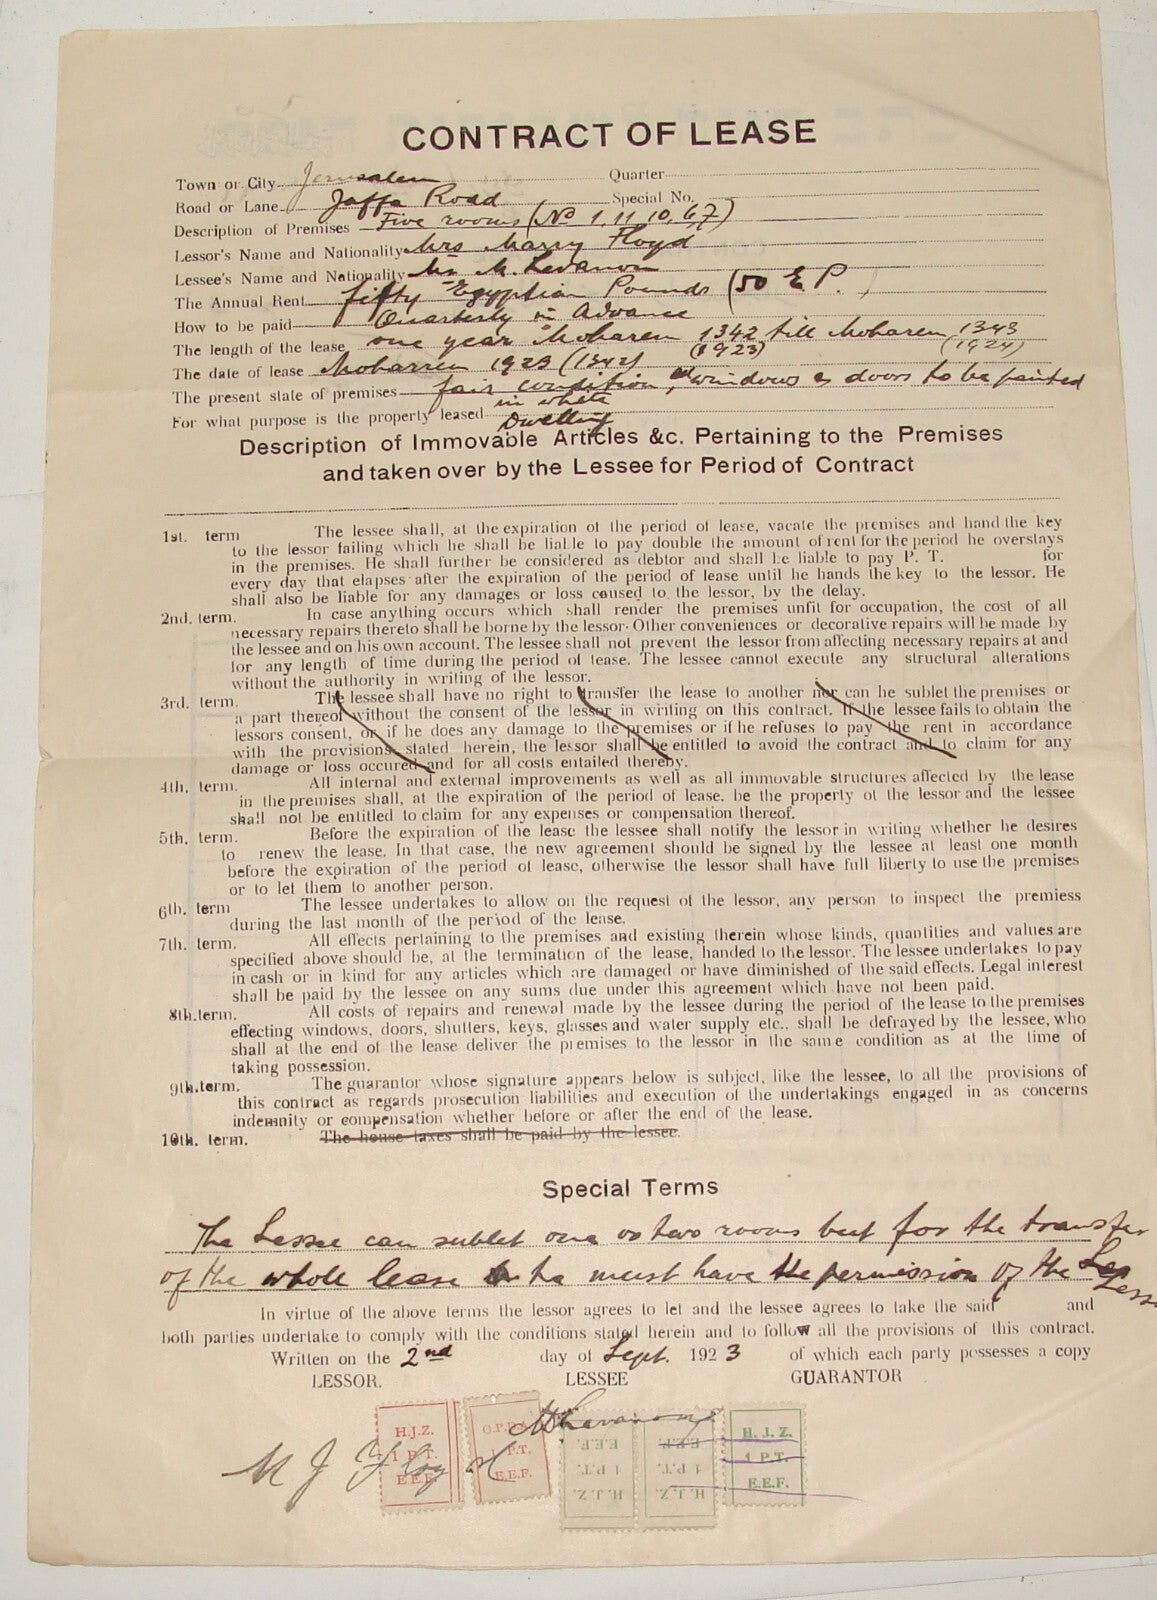 CONTRACT OF LEASE
Town or City Jerusalem Quarter
Road or Lane Jaffa Road Special No.
Description of Premises Five rooms (No 1, 11, 10, 6, 7)
Lessor's Name and Nationality Mrs Marry Floyd
Lessee's Name and Nationality Mr M. Levanon
The Annual Rent fifty Egyptian Pounds (50 E P.)
How to be paid Quarterly in Advance
The length of the lease one year Moharem 1342 till Moharem 1343
(1923) (1924)
The date of lease Moharrem 1923 (1342)
The present state of premises fair condition, windows & doors to be painted
in white
For what purpose is the property leased Dwelling
Description of Immovable Articles &c. Pertaining to the Premises
and taken over by the Lessee for Period of Contract
1st. term The lessee shall, at the expiration of the period of lease, vacate the premises and hand the key
to the lessor failing which he shall be liable to pay double the amount of rent for the period he overstays
in the premises. He shall further be considered as debtor and shall be liable to pay P. T. for
every day that elapses after the expiration of the period of lease until he hands the key to the lessor. He
shall also be liable for any damages or loss caused to the lessor, by the delay.
2nd. term. In case anything occurs which shall render the premises unfit for occupation, the cost of all
necessary repairs thereto shall be borne by the lessor. Other conveniences or decorative repairs will be made by
the lessee and on his own account. The lessee shall not prevent the lessor from affecting necessary repairs at and
for any length of time during the period of lease. The lessee cannot execute any structural alterations
without the authority in writing of the lessor.
3rd. term. The lessee shall have no right to transfer the lease to another nor can he sublet the premises or
a part thereof without the consent of the lessor in writing on this contract. If the lessee fails to obtain the
lessors consent, or if he does any damage to the premises or if he refuses to pay the rent in accordance
with the provisions stated herein, the lessor shall be entitled to avoid the contract and to claim for any
damage or loss occured and for all costs entailed thereby.
4th. term. All internal and external improvements as well as all immovable structures affected by the lease
in the premises shall, at the expiration of the period of lease. be the property of the lessor and the lessee
shall not be entitled to claim for any expenses or compensation thereof.
5th. term. Before the expiration of the lease the lessee shall notify the lessor in writing whether he desires
to renew the lease. In that case, the new agreement should be signed by the lessee at least one month
before the expiration of the period of lease, otherwise the lessor shall have full liberty to use the premises
or to let them to another person.
6th. term The lessee undertakes to allow on the request of the lessor, any person to inspect the premiess
during the last month of the period of the lease.
7th. term. All effects pertaining to the premises and existing therein whose kinds, quantities and values are
specified above should be, at the termination of the lease, handed to the lessor. The lessee undertakes to pay
in cash or in kind for any articles which are damaged or have diminished of the said effects. Legal interest
shall be paid by the lessee on any sums due under this agreement which have not been paid.
8th. term. All costs of repairs and renewal made by the lessee during the period of the lease to the premises
effecting windows, doors, shutters, keys, glasses and water supply etc., shall be defrayed by the lessee, who
shall at the end of the lease deliver the premises to the lessor in the same condition as at the time of
taking possession.
9th. term. The guarantor whose signature appears below is subject, like the lessee, to all the provisions of
this contract as regards prosecution liabilities and execution of the undertakings engaged in as concerns
indemnity or compensation whether before or after the end of the lease.
10th. term. The house taxes shall be paid by the lessee.
Special Terms
The Lessee can sublet one or two rooms but for the transfer
of the whole lease he must have the permission of the
Lessor
In virtue of the above terms the lessor agrees to let and the lessee agrees to take the said and
both parties undertake to comply with the conditions stated herein and to follow all the provisions of this contract.
Written on the 2nd day of Sept. 1923 of which each party possesses a copy
LESSOR. LESSEE GUARANTOR
M J Floyd
H.J.Z.
1 P.T.
E.E.F.
O.P.D.A.
P.T.
E.E.F.
H.J.Z.
1 P.T.
E.E.F.
H.J.Z.
1 P.T.
E.E.F.
H.J.Z.
1 P.T.
E.E.F.